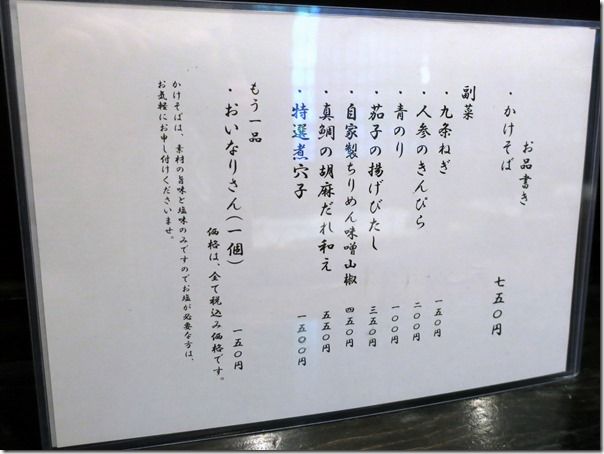 お品書き
・かけそば 七五〇円
副菜
・九条ねぎ 一五〇円
・人参のきんぴら 二〇〇円
・青のり 一〇〇円
・茄子の揚げびたし 三五〇円
・自家製ちりめん味噌山椒 四五〇円
・真鯛の胡麻だれ和え 五五〇円
・特選煮穴子 一五〇〇円
もう一品
・おいなりさん(一個) 一五〇円
価格は、全て税込み価格です。
かけそばは、素材の旨味と塩味のみですのでお塩が必要な方は、
お気軽にお申し付けくださいませ。